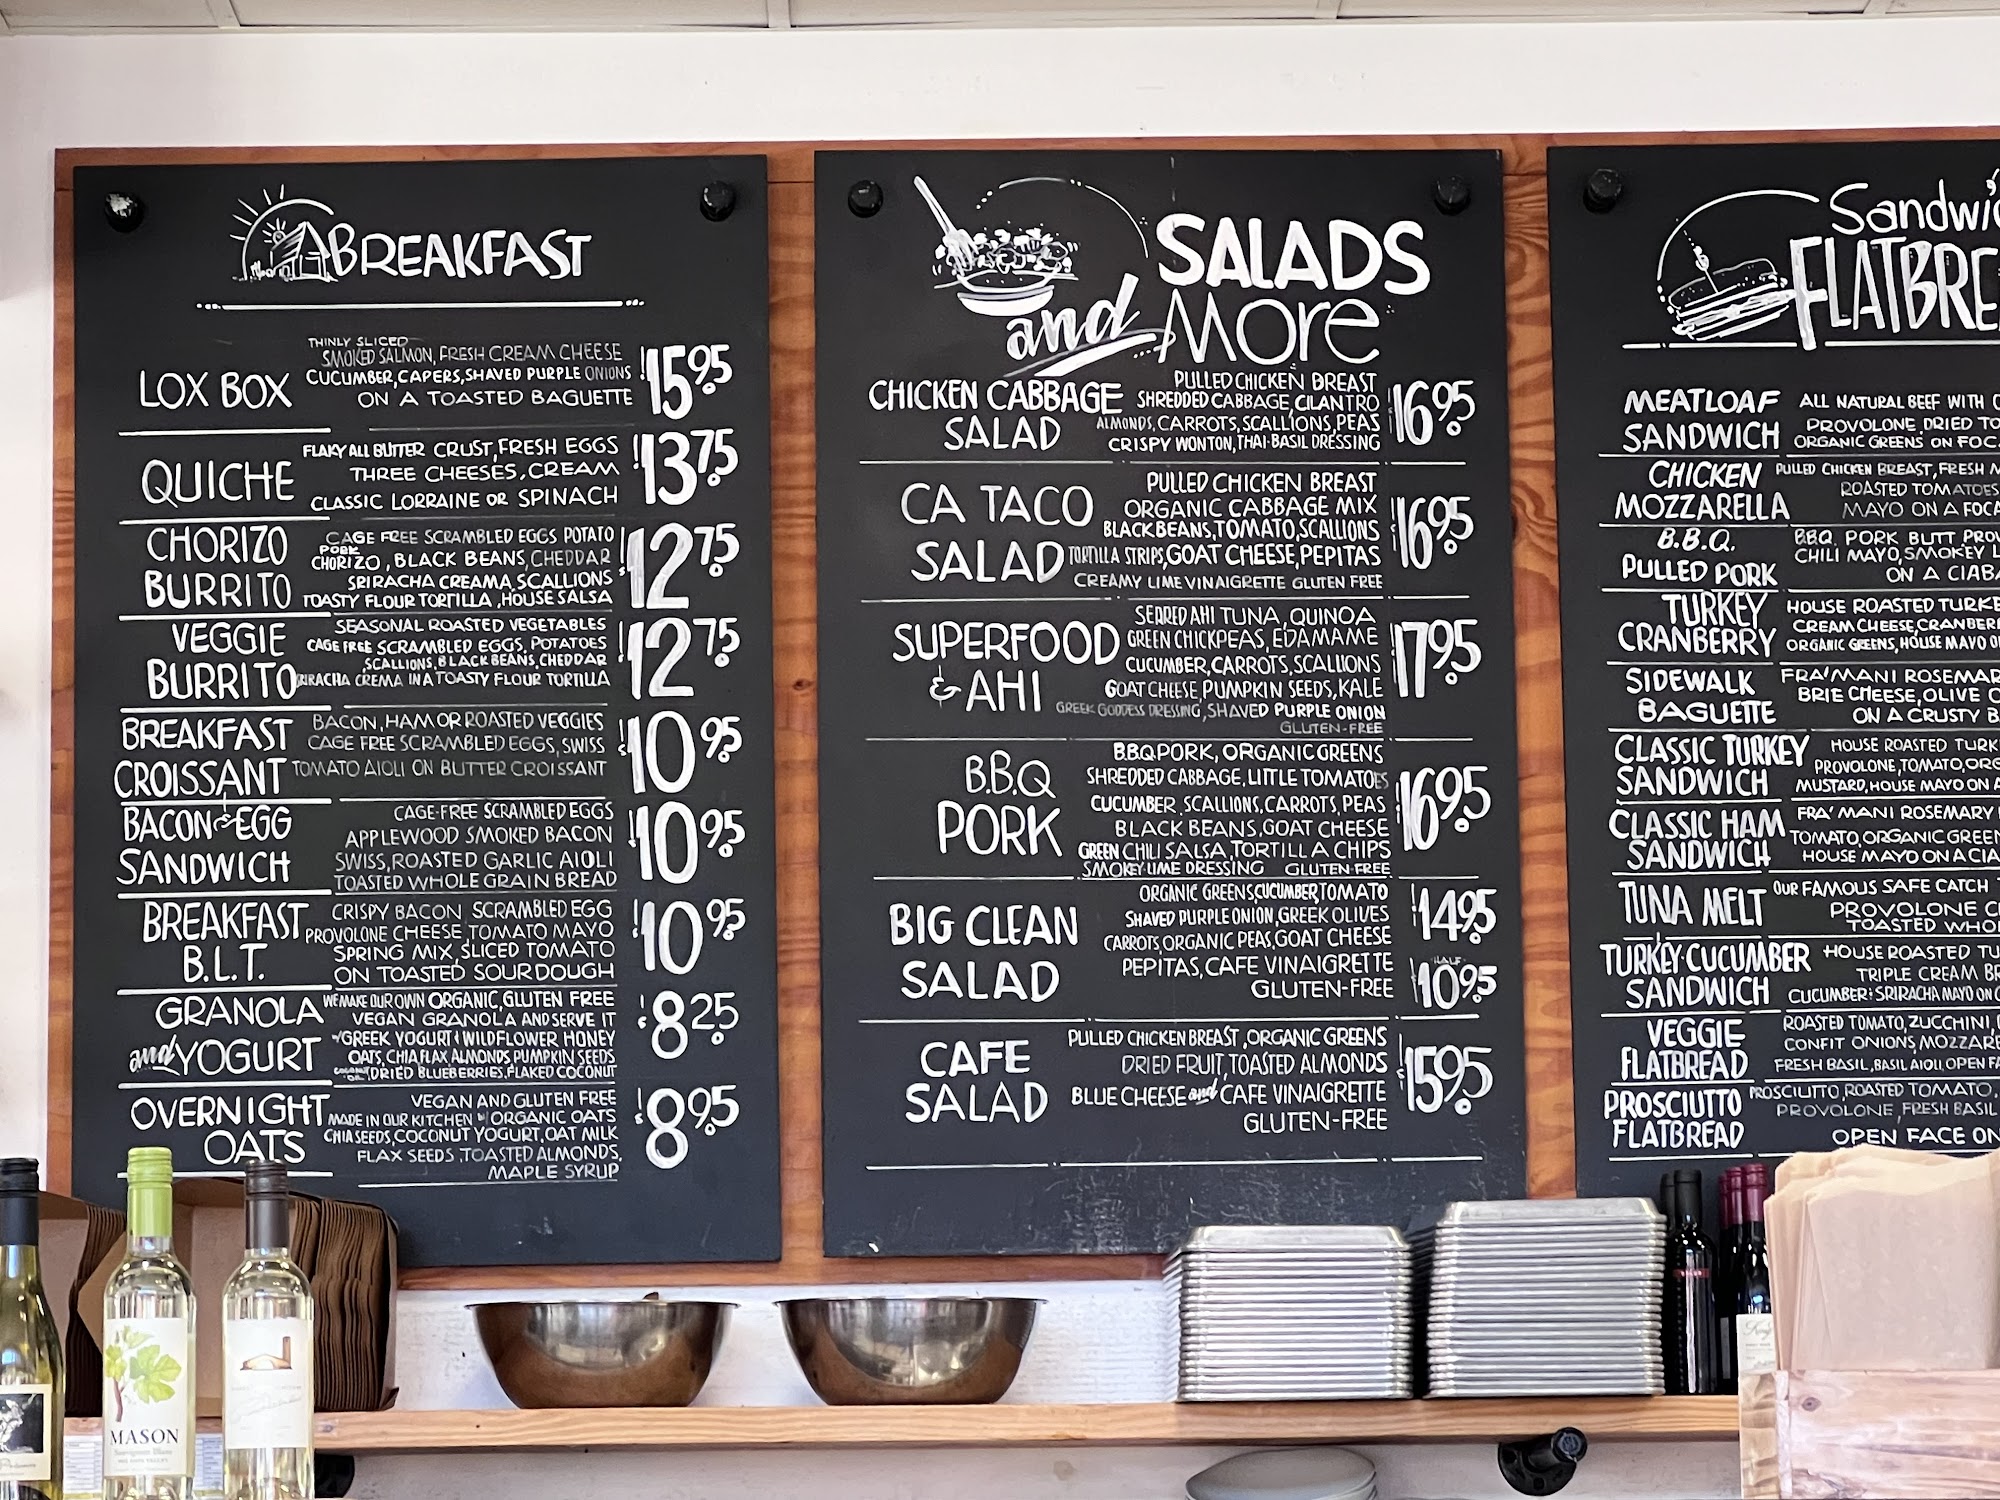 BREAKFAST
LOX BOX
THINLY SLICED
SMOKED SALMON, FRESH CREAM CHEESE
CUCUMBER, CAPERS, SHAVED PURPLE ONIONS
ON A TOASTED BAGUETTE
$15.95
QUICHE
FLAKY ALL BUTTER CRUST, FRESH EGGS
THREE CHEESES, CREAM
CLASSIC LORRAINE OR SPINACH
$13.75
CHORIZO
BURRITO
CAGE FREE SCRAMBLED EGGS POTATO
PORK
CHORIZO, BLACK BEANS, CHEDDAR
SRIRACHA CREAMA, SCALLIONS
TOASTY FLOUR TORTILLA, HOUSE SALSA
$12.75
VEGGIE
BURRITO
SEASONAL ROASTED VEGETABLES
CAGE FREE SCRAMBLED EGGS, POTATOES
SCALLIONS, BLACK BEANS, CHEDDAR
SRIRACHA CREMA IN A TOASTY FLOUR TORTILLA
$12.75
BREAKFAST
CROISSANT
BACON, HAM OR ROASTED VEGGIES
CAGE FREE SCRAMBLED EGGS, SWISS
TOMATO AIOLI ON BUTTER CROISSANT
$10.95
BACON & EGG
SANDWICH
CAGE-FREE SCRAMBLED EGGS
APPLEWOOD SMOKED BACON
SWISS, ROASTED GARLIC AIOLI
TOASTED WHOLE GRAIN BREAD
$10.95
BREAKFAST
B.L.T.
CRISPY BACON, SCRAMBLED EGG
PROVOLONE CHEESE, TOMATO MAYO
SPRING MIX, SLICED TOMATO
ON TOASTED SOURDOUGH
$10.95
GRANOLA
and YOGURT
WE MAKE OUR OWN ORGANIC, GLUTEN FREE
VEGAN GRANOLA AND SERVE IT
W/ GREEK YOGURT & WILDFLOWER HONEY
OATS, CHIA FLAX ALMONDS PUMPKIN SEEDS
COCONUT OIL, DRIED BLUEBERRIES, FLAKED COCONUT
$8.25
OVERNIGHT
OATS
VEGAN AND GLUTEN FREE
MADE IN OUR KITCHEN W/ ORGANIC OATS
CHIA SEEDS, COCONUT YOGURT, OAT MILK
FLAX SEEDS, TOASTED ALMONDS,
MAPLE SYRUP
$8.95
SALADS
and More
CHICKEN CABBAGE
SALAD
PULLED CHICKEN BREAST
SHREDDED CABBAGE, CILANTRO
ALMONDS, CARROTS, SCALLIONS, PEAS
CRISPY WONTON, THAI-BASIL DRESSING
$16.95
CA TACO
SALAD
PULLED CHICKEN BREAST
ORGANIC CABBAGE MIX
BLACK BEANS, TOMATO, SCALLIONS
TORTILLA STRIPS, GOAT CHEESE, PEPITAS
CREAMY LIME VINAIGRETTE GLUTEN FREE
$16.95
SUPERFOOD
& AHI
SEARED AHI TUNA, QUINOA
GREEN CHICKPEAS, EDAMAME
CUCUMBER, CARROTS, SCALLIONS
GOAT CHEESE, PUMPKIN SEEDS, KALE
GREEK GODDESS DRESSING, SHAVED PURPLE ONION
GLUTEN-FREE
$17.95
B.B.Q
PORK
B.B.Q PORK, ORGANIC GREENS
SHREDDED CABBAGE, LITTLE TOMATOES
CUCUMBER, SCALLIONS, CARROTS, PEAS
BLACK BEANS, GOAT CHEESE
GREEN CHILI SALSA, TORTILLA CHIPS
SMOKEY-LIME DRESSING GLUTEN-FREE
$16.95
BIG CLEAN
SALAD
ORGANIC GREENS, CUCUMBER, TOMATO
SHAVED PURPLE ONION, GREEK OLIVES
CARROTS, ORGANIC PEAS, GOAT CHEESE
PEPITAS, CAFE VINAIGRETTE
GLUTEN-FREE
$14.95
HALF
$10.95
CAFE
SALAD
PULLED CHICKEN BREAST, ORGANIC GREENS
DRIED FRUIT, TOASTED ALMONDS
BLUE CHEESE and CAFE VINAIGRETTE
GLUTEN-FREE
$15.95
Sandwic
FLATBRE
MEATLOAF
SANDWICH
ALL NATURAL BEEF WITH
PROVOLONE, DRIED TO
ORGANIC GREENS ON FOCA
CHICKEN
MOZZARELLA
PULLED CHICKEN BREAST, FRESH M
ROASTED TOMATOES
MAYO ON A FOCA
B.B.Q.
PULLED PORK
B.B.Q. PORK BUTT PROV
CHILI MAYO, SMOKEY L
ON A CIABA
TURKEY
CRANBERRY
HOUSE ROASTED TURKE
CREAM CHEESE, CRANBERR
ORGANIC GREENS, HOUSE MAYO O
SIDEWALK
BAGUETTE
FRA'MANI ROSEMAR
BRIE CHEESE, OLIVE O
ON A CRUSTY B
CLASSIC TURKEY
SANDWICH
HOUSE ROASTED TURK
PROVOLONE, TOMATO, ORG
MUSTARD, HOUSE MAYO ON A
CLASSIC HAM
SANDWICH
FRA'MANI ROSEMARY
TOMATO, ORGANIC GREEN
HOUSE MAYO ON A CIA
TUNA MELT
OUR FAMOUS SAFE CATCH T
PROVOLONE C
TOASTED WHOL
TURKEY-CUCUMBER
SANDWICH
HOUSE ROASTED TU
TRIPLE CREAM BR
CUCUMBER & SRIRACHA MAYO ON
VEGGIE
FLATBREAD
ROASTED TOMATO, ZUCCHINI,
CONFIT ONIONS, MOZZARE
FRESH BASIL, BASIL AIOLI, OPEN FA
PROSCIUTTO
FLATBREAD
PROSCIUTTO, ROASTED TOMATO,
PROVOLONE, FRESH BASIL
OPEN FACE ON
MASON
Sauvignon Blanc